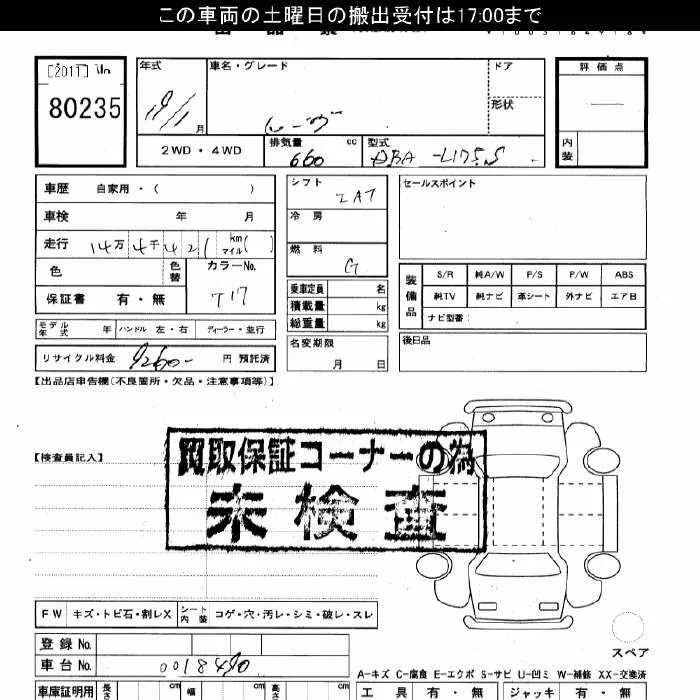 この車両の土曜日の搬出受付は17:00まで
[2011]
80235
年式
車名・グレード
ドア
評価点
月
ムーヴ
形状
2WD・4WD
排気量 cc
660
型式
DBA-L175S
内装
車歴 自家用・( )
シフト
IAT
セールスポイント
車検 年 月
冷房
走行 14万4千421 km マイル( )
燃料
G
色
色替
カラーNo.
T17
保証書 有・無
乗車定員 名
積載量 kg
総重量 kg
装備品
S/R 純A/W P/S P/W ABS
純TV 純ナビ 革シート 外ナビ エアB
ナビ型番:
モデル年式 年 ハンドル 左・右 ディーラー・並行
名変期限
月 日
後日品
リサイクル料金 9260- 円 預託済
【出品店申告欄(不良箇所・欠品・注意事項等)】
【検査員記入】
買取保証コーナーの為
未検査
FW キズ・トビ石・割レX シート内装 コゲ・穴・汚レ・シミ・破レ・スレ
スペア
登録No.
車台No. 0018490
A-キズ C-腐食 E-エクボ S-サビ U-凹ミ W-補修 XX-交換済
車庫証明用 長さ cm 幅 cm 高さ cm
工具 有・無 ジャッキ 有・無